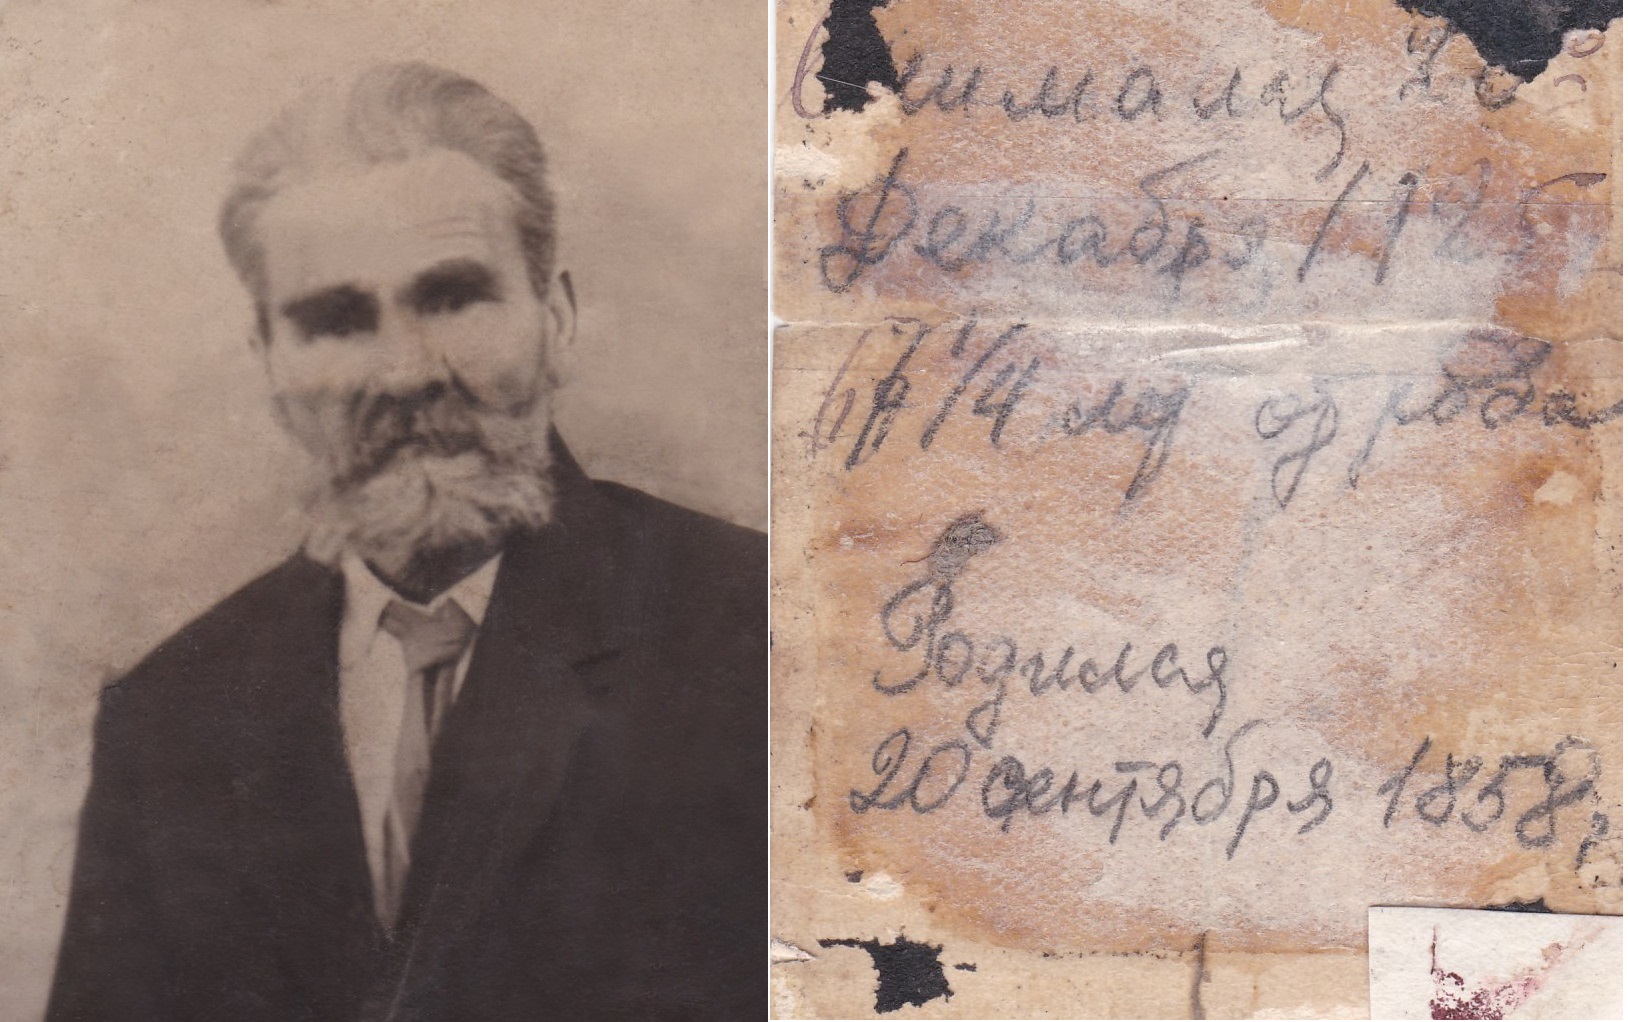 Снимался 20
Декабря /1925
67 1/4 лет од рода
Родился
20 сентября 1858 г